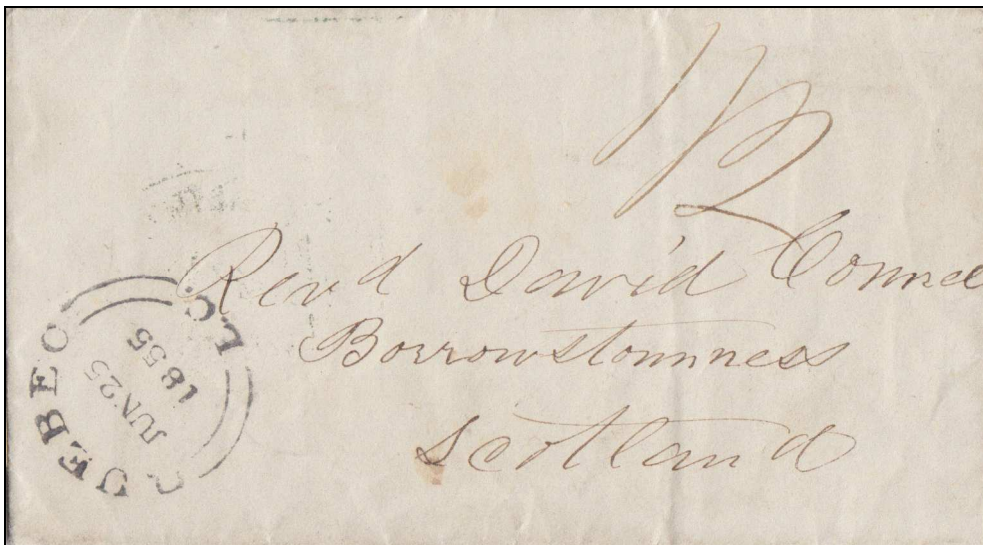 Revd David Connel
Borrowstounness
Scotland
QUEBEC L.C.
JUN 25
1855